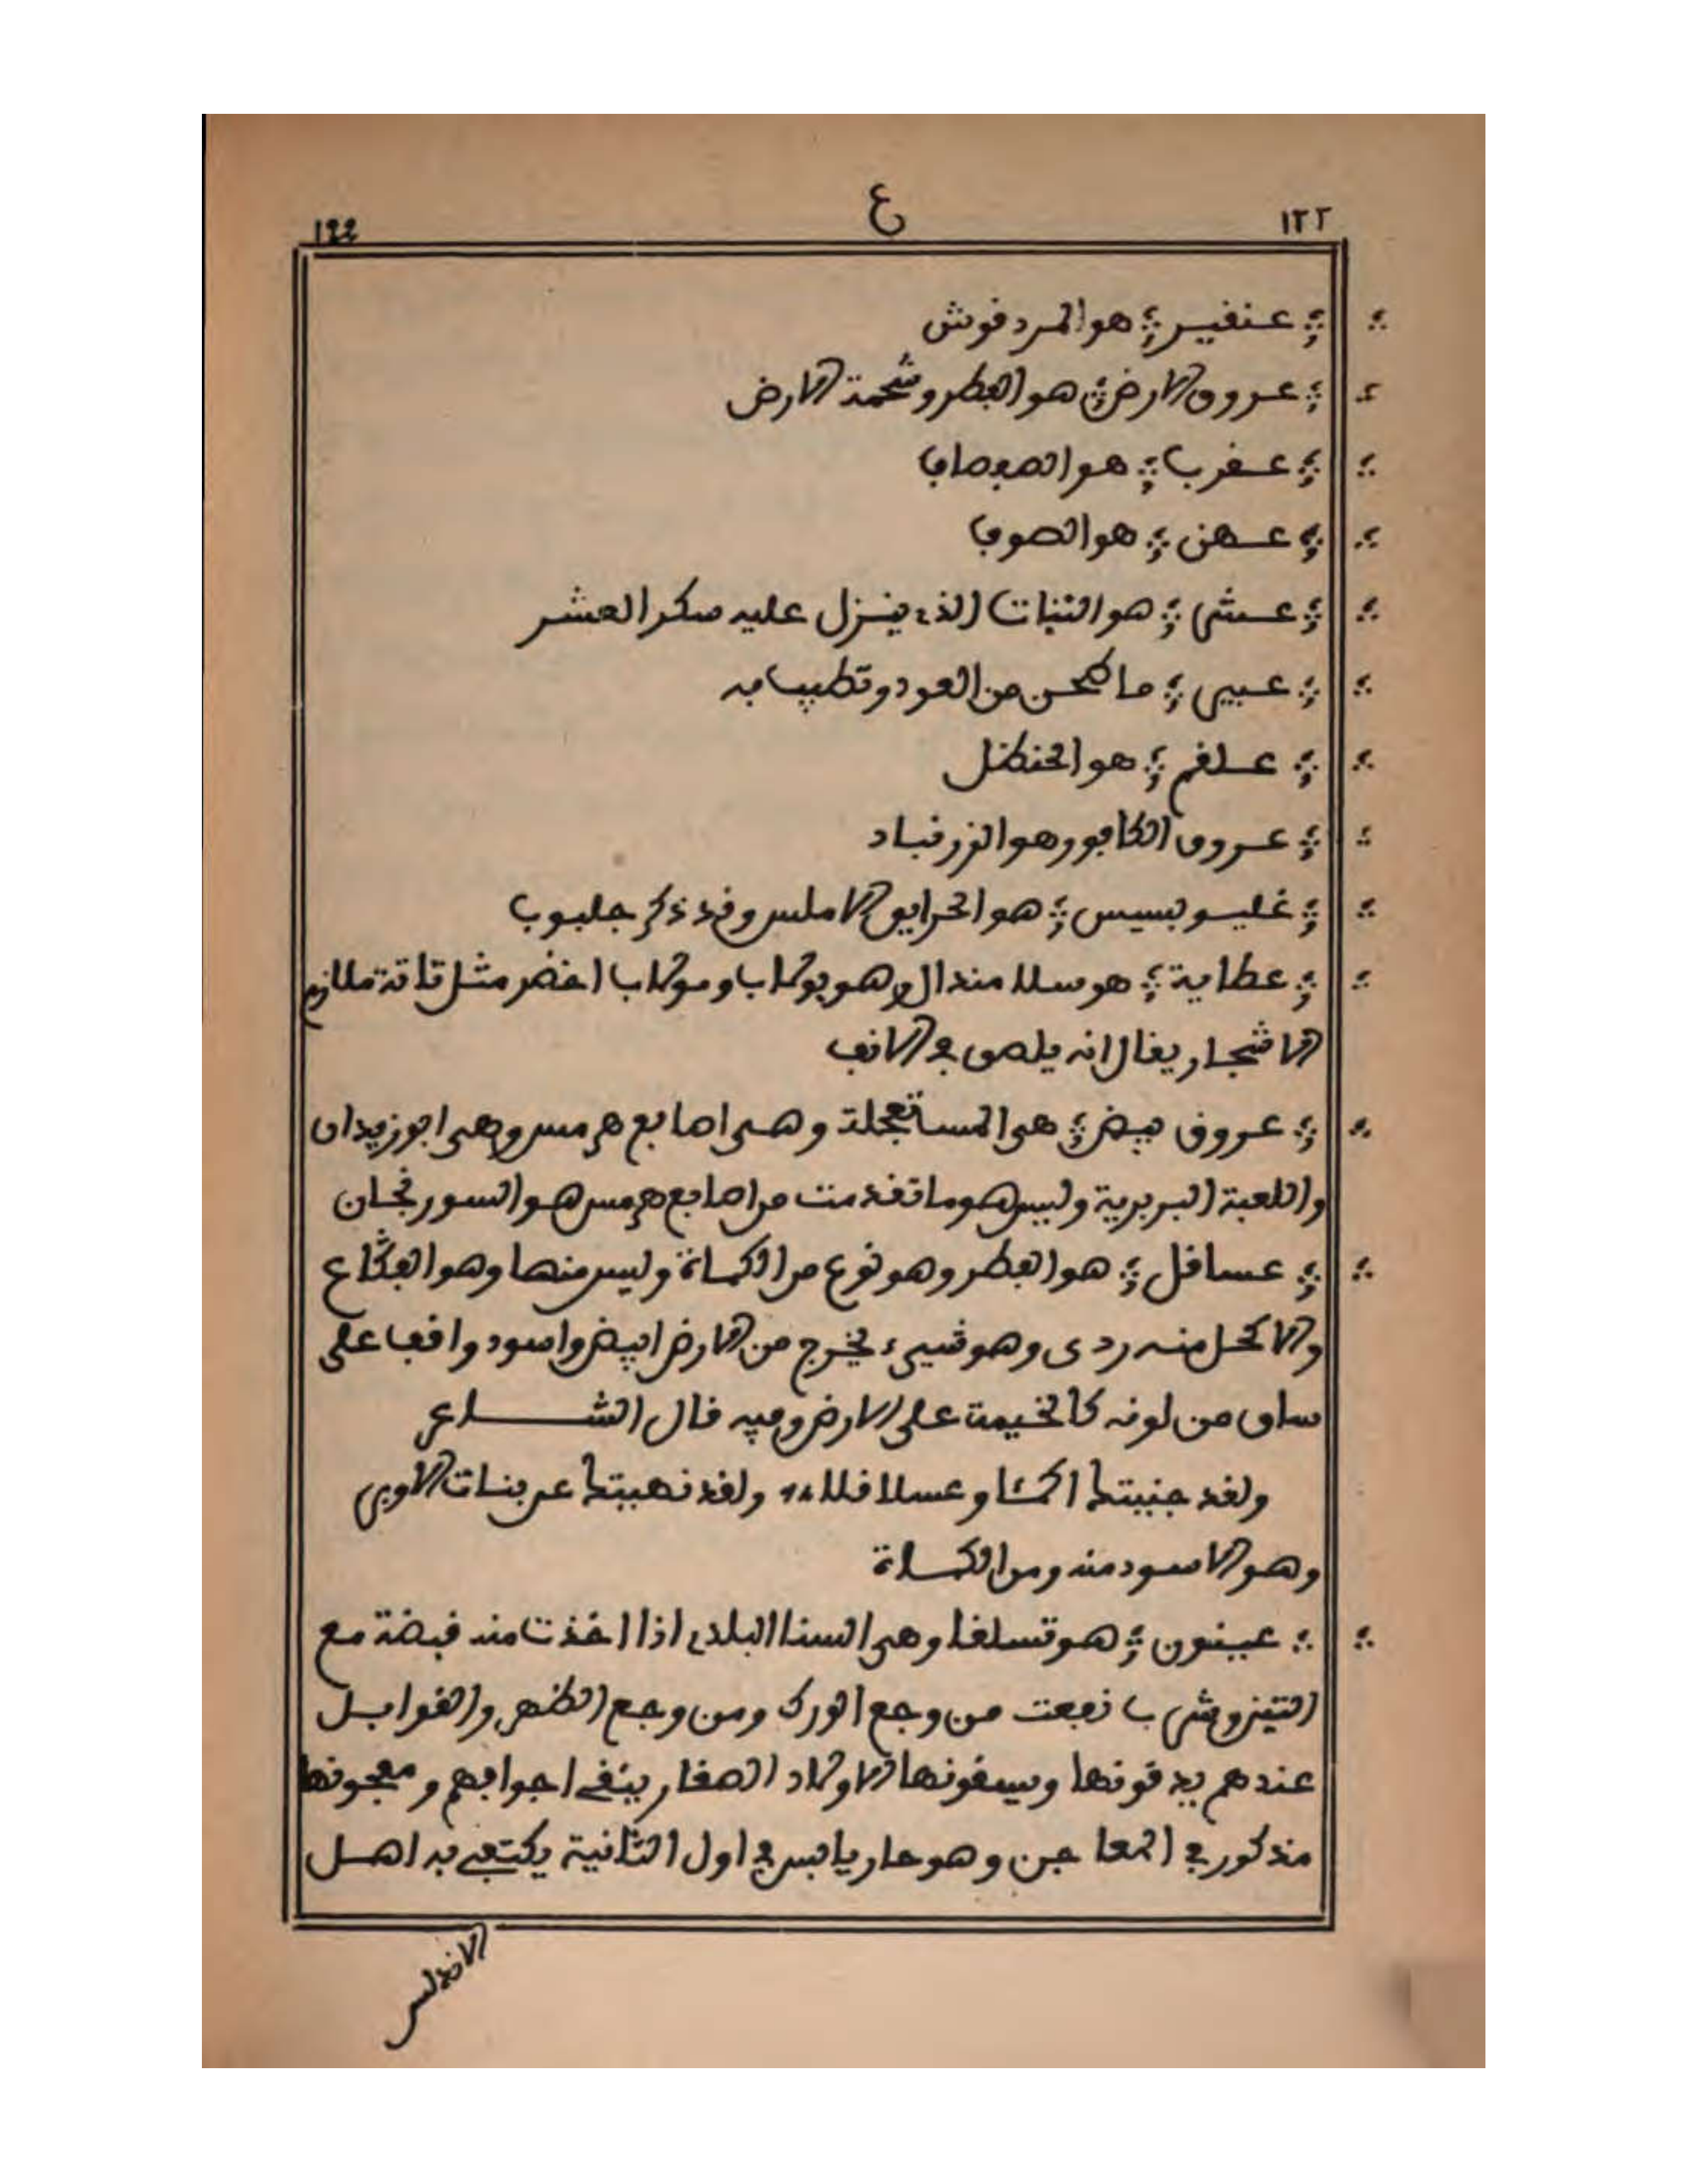 ١٢٢ ع 122
عنقير هو المردقوش
عروق الارض هو الفطر وشحمة الارض
عقرب هو الصفصاف
عهن هو الصوف
عشى هو النبات الذي ينزل عليه سكر العشر
عبير ما طحن من العود وتطيب به
علقم هو الحنظل
عروق الكافور هو الزرنباد
غليوبسيس هو الحرايق الاملس وقد ذكر جلبوب
عطاية هو سلامندال وهو بولاب وبولاب اخضر مثل تاتة ملازم
الاشجار يقال انه يلصق في الانف
عروق بيض هي المستعجلة وهي اصابع هرمس وهي ابوزيدان
واللعبة البربرية وليس هو ما تقدمت من اصابع هرمس هو السورنجان
عساقل هو الفطر وهو نوع من الكماة وليس منها وهو الفقاع
والاكل منه ردى وهو شيء يخرج من الارض ابيض واسود واقف على
ساق من لونه كالخيمة على الارض وفيه قال الشاعر
ولقد جنيتك اكمئا وعساقلا ولقد نهيتك عن بنات الاوبر
وهو الاسود منه ومن الكماة
عينون هو تسلغا وهي السنا البلدي اذا اخذت منه قبضة مع
التين وشرب نفعت من وجع الورك ومن وجع الظهر والقوابل
عندهم يدقونها ويسقونها الاولاد الصغار ينقي اجوافهم ومعجونها
مذكور في المعاجن وهو حار يابس في اول الثانية يكتفي به اهل
الاندلس